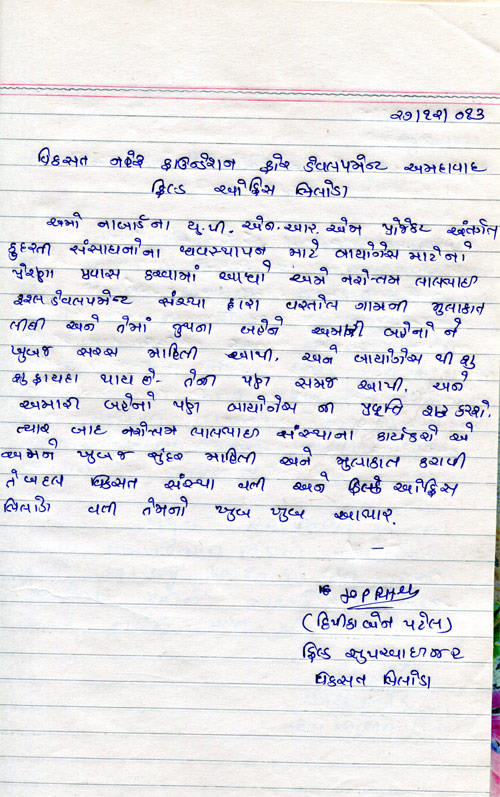 ૨૭/૧૨/૦૧૩
વિકસત નહેરુ ફાઉન્ડેશન ફોર ડેવલપમેન્ટ અમદાવાદ
ફિલ્ડ ઓફિસ ભિલોડા
અમો નાબાર્ડના યુ.પી. એન.આર.એમ પ્રોજેક્ટ અંતર્ગત
કુદરતી સંસાધનોના વ્યવસ્થાપન માટે બાયોગેસ માટેનો
પ્રેરણા પ્રવાસ કરવામાં આવ્યો અમે નરોત્તમ લાલભાઇ
રૂરલ ડેવલપમેન્ટ સંસ્થા દ્વારા વસ્તોલ ગામની મુલાકાત
લીધી અને તેમાં જુથના બહેને અમારી બહેનો ને
ખુબજ સરસ માહિતી આપી. અને બાયોગેસ થી શુ
શુ ફાયદા થાય છે. તેની પણ સમજ આપી. અને
અમારી બહેનો પણ બાયોગેસ ની પ્રવૃતિ શરૂ કરશે.
ત્યાર બાદ નરોત્તમ લાલભાઇ સંસ્થાના કાર્યકરો એ
અમને ખુબજ સુંદર માહિતી અને મુલાકાત કરાવી
તે બદલ વિકસત સંસ્થા વતી અને ફિલ્ડ ઓફિસ
ભિલોડા વતી તેમનો ખુબ ખુબ આભાર.
(દિપીકાબેન પટેલ)
ફિલ્ડ સુપરવાઇજર
વિકસત ભિલોડા